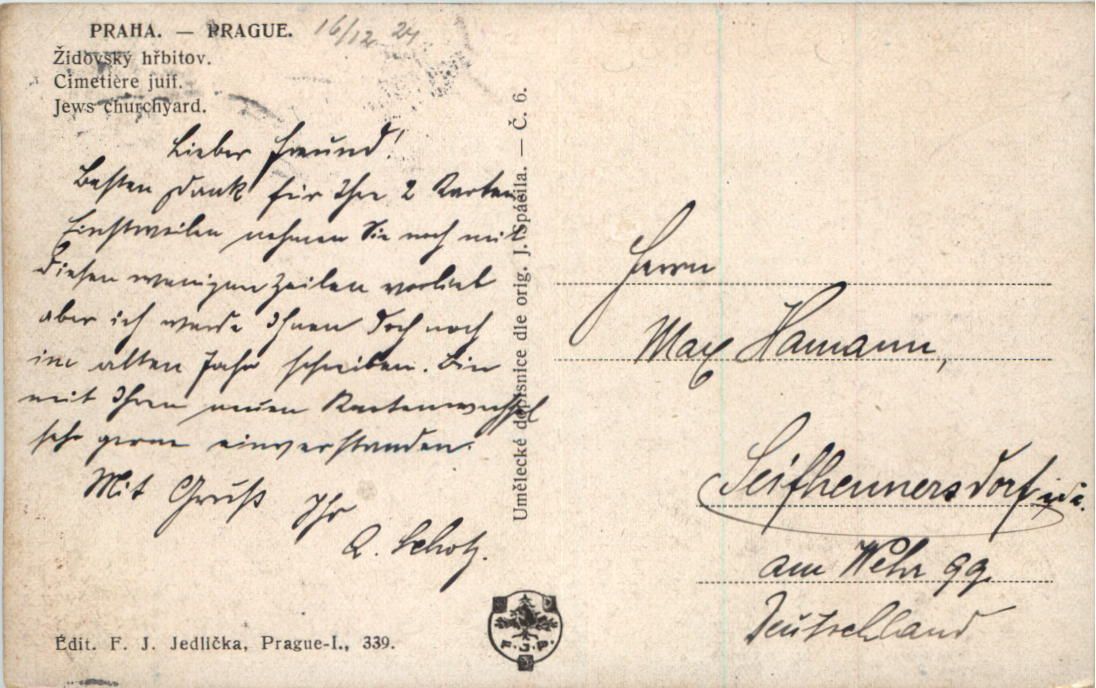 PRAHA. — PRAGUE.
16/12 24
Židovský hřbitov.
Cimetière juif.
Jews churchyard.
Lieber Freund!
Besten Dank für Ihre 2 Karten
Einstweilen nehmen Sie noch mit
diesen wenigen Zeilen vorlieb
aber ich werde Ihnen doch noch
im alten Jahr schreiben. Bin
mit Ihren neuen Kartenwechsel
sehr gerne einverstanden.
Mit Gruß Ihr
A. Scholz.
Umělecké dopisnice dle orig. J. Spáčila. — Č. 6.
Herrn
Max Hamann,
Seifhennersdorf i/S.
am Wehr 99.
Deutschland
Édit. F. J. Jedlička, Prague-I., 339.
F. J. P.